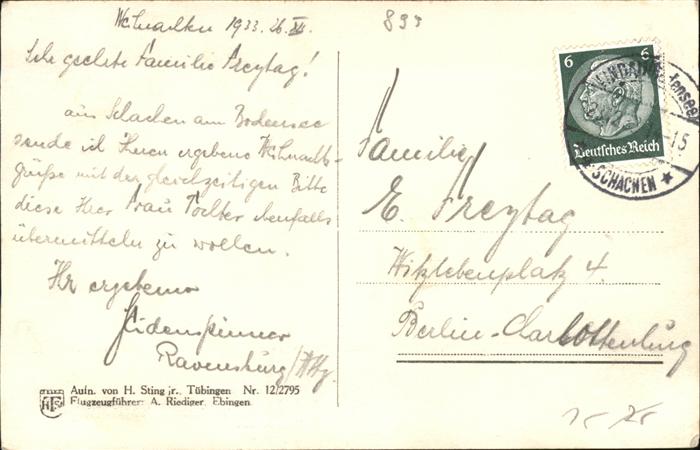 Weihnachten 1933. 26. XII.
Sehr geehrte Familie Freytag!
aus Schachen am Bodensee
sende ich Ihnen ergebene Weihnachts-
grüße mit der gleichzeitigen Bitte
diese Ihrer Frau Tochter ebenfalls
übermitteln zu wollen.
Ihr ergebener
Seidenspinner
Ravensburg/Wttbg.
Aufn. von H. Sting jr., Tübingen Nr. 12/2795
Flugzeugführer: A. Riediger, Ebingen
HST
893
6 6
Deutsches Reich
LINDAU
SCHACHEN
15
Familie
E. Freytag
Witzlebenplatz 4.
Berlin-Charlottenburg